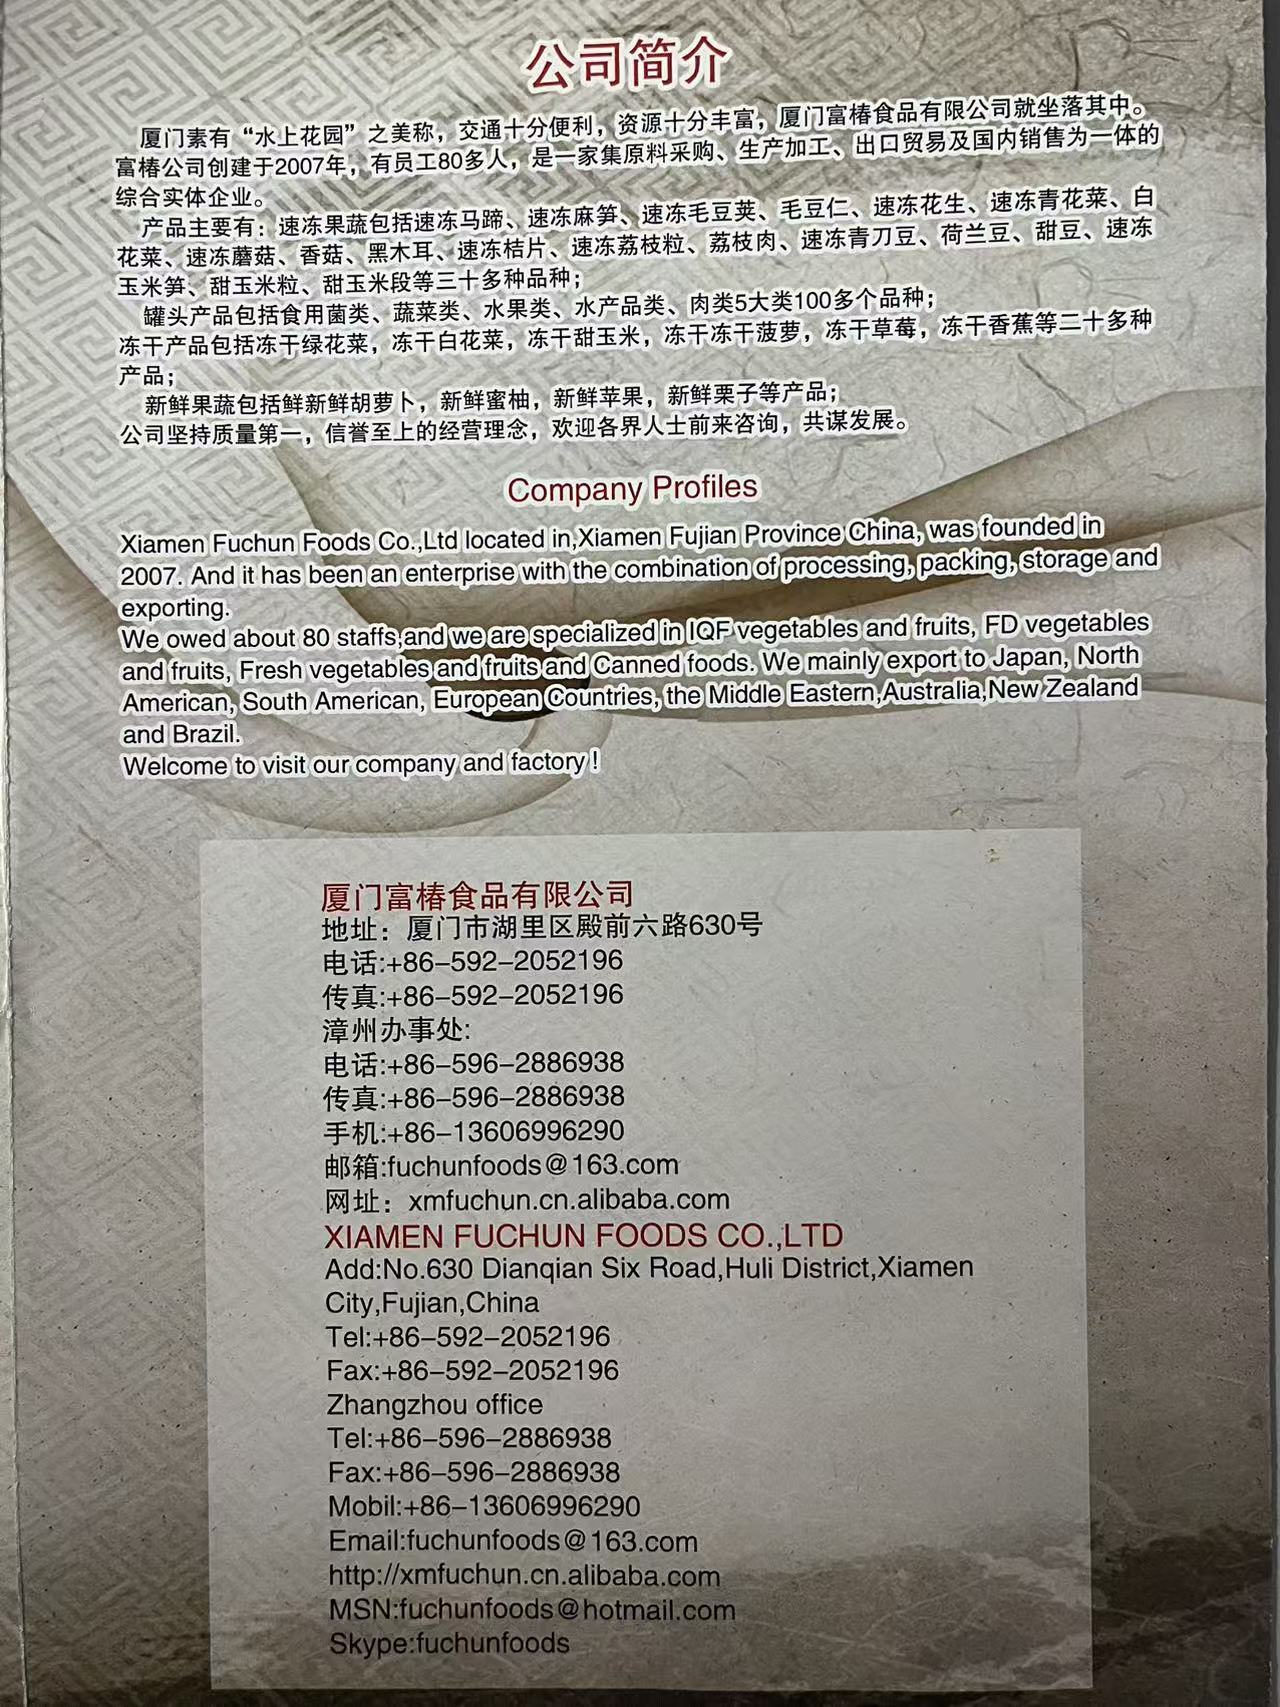 公司简介
厦门素有“水上花园”之美称，交通十分便利，资源十分丰富，厦门富椿食品有限公司就坐落其中。
富椿公司创建于2007年，有员工80多人，是一家集原料采购、生产加工、出口贸易及国内销售为一体的
综合实体企业。
产品主要有：速冻果蔬包括速冻马蹄、速冻麻笋、速冻毛豆荚、毛豆仁、速冻花生、速冻青花菜、白
花菜、速冻蘑菇、香菇、黑木耳、速冻桔片、速冻荔枝粒、荔枝肉、速冻青刀豆、荷兰豆、甜豆、速冻
玉米笋、甜玉米粒、甜玉米段等三十多种品种；
罐头产品包括食用菌类、蔬菜类、水果类、水产品类、肉类5大类100多个品种；
冻干产品包括冻干绿花菜，冻干白花菜，冻干甜玉米，冻干冻干菠萝，冻干草莓，冻干香蕉等二十多种
产品；
新鲜果蔬包括鲜新鲜胡萝卜，新鲜蜜柚，新鲜苹果，新鲜栗子等产品；
公司坚持质量第一，信誉至上的经营理念，欢迎各界人士前来咨询，共谋发展。
Company Profiles
Xiamen Fuchun Foods Co.,Ltd located in,Xiamen Fujian Province China, was founded in
2007. And it has been an enterprise with the combination of processing, packing, storage and
exporting.
We owed about 80 staffs,and we are specialized in IQF vegetables and fruits, FD vegetables
and fruits, Fresh vegetables and fruits and Canned foods. We mainly export to Japan, North
American, South American, European Countries, the Middle Eastern,Australia,New Zealand
and Brazil.
Welcome to visit our company and factory !
厦门富椿食品有限公司
地址：厦门市湖里区殿前六路630号
电话:+86-592-2052196
传真:+86-592-2052196
漳州办事处:
电话:+86-596-2886938
传真:+86-596-2886938
手机:+86-13606996290
邮箱:fuchunfoods@163.com
网址：xmfuchun.cn.alibaba.com
XIAMEN FUCHUN FOODS CO.,LTD
Add:No.630 Dianqian Six Road,Huli District,Xiamen
City,Fujian,China
Tel:+86-592-2052196
Fax:+86-592-2052196
Zhangzhou office
Tel:+86-596-2886938
Fax:+86-596-2886938
Mobil:+86-13606996290
Email:fuchunfoods@163.com
http://xmfuchun.cn.alibaba.com
MSN:fuchunfoods@hotmail.com
Skype:fuchunfoods